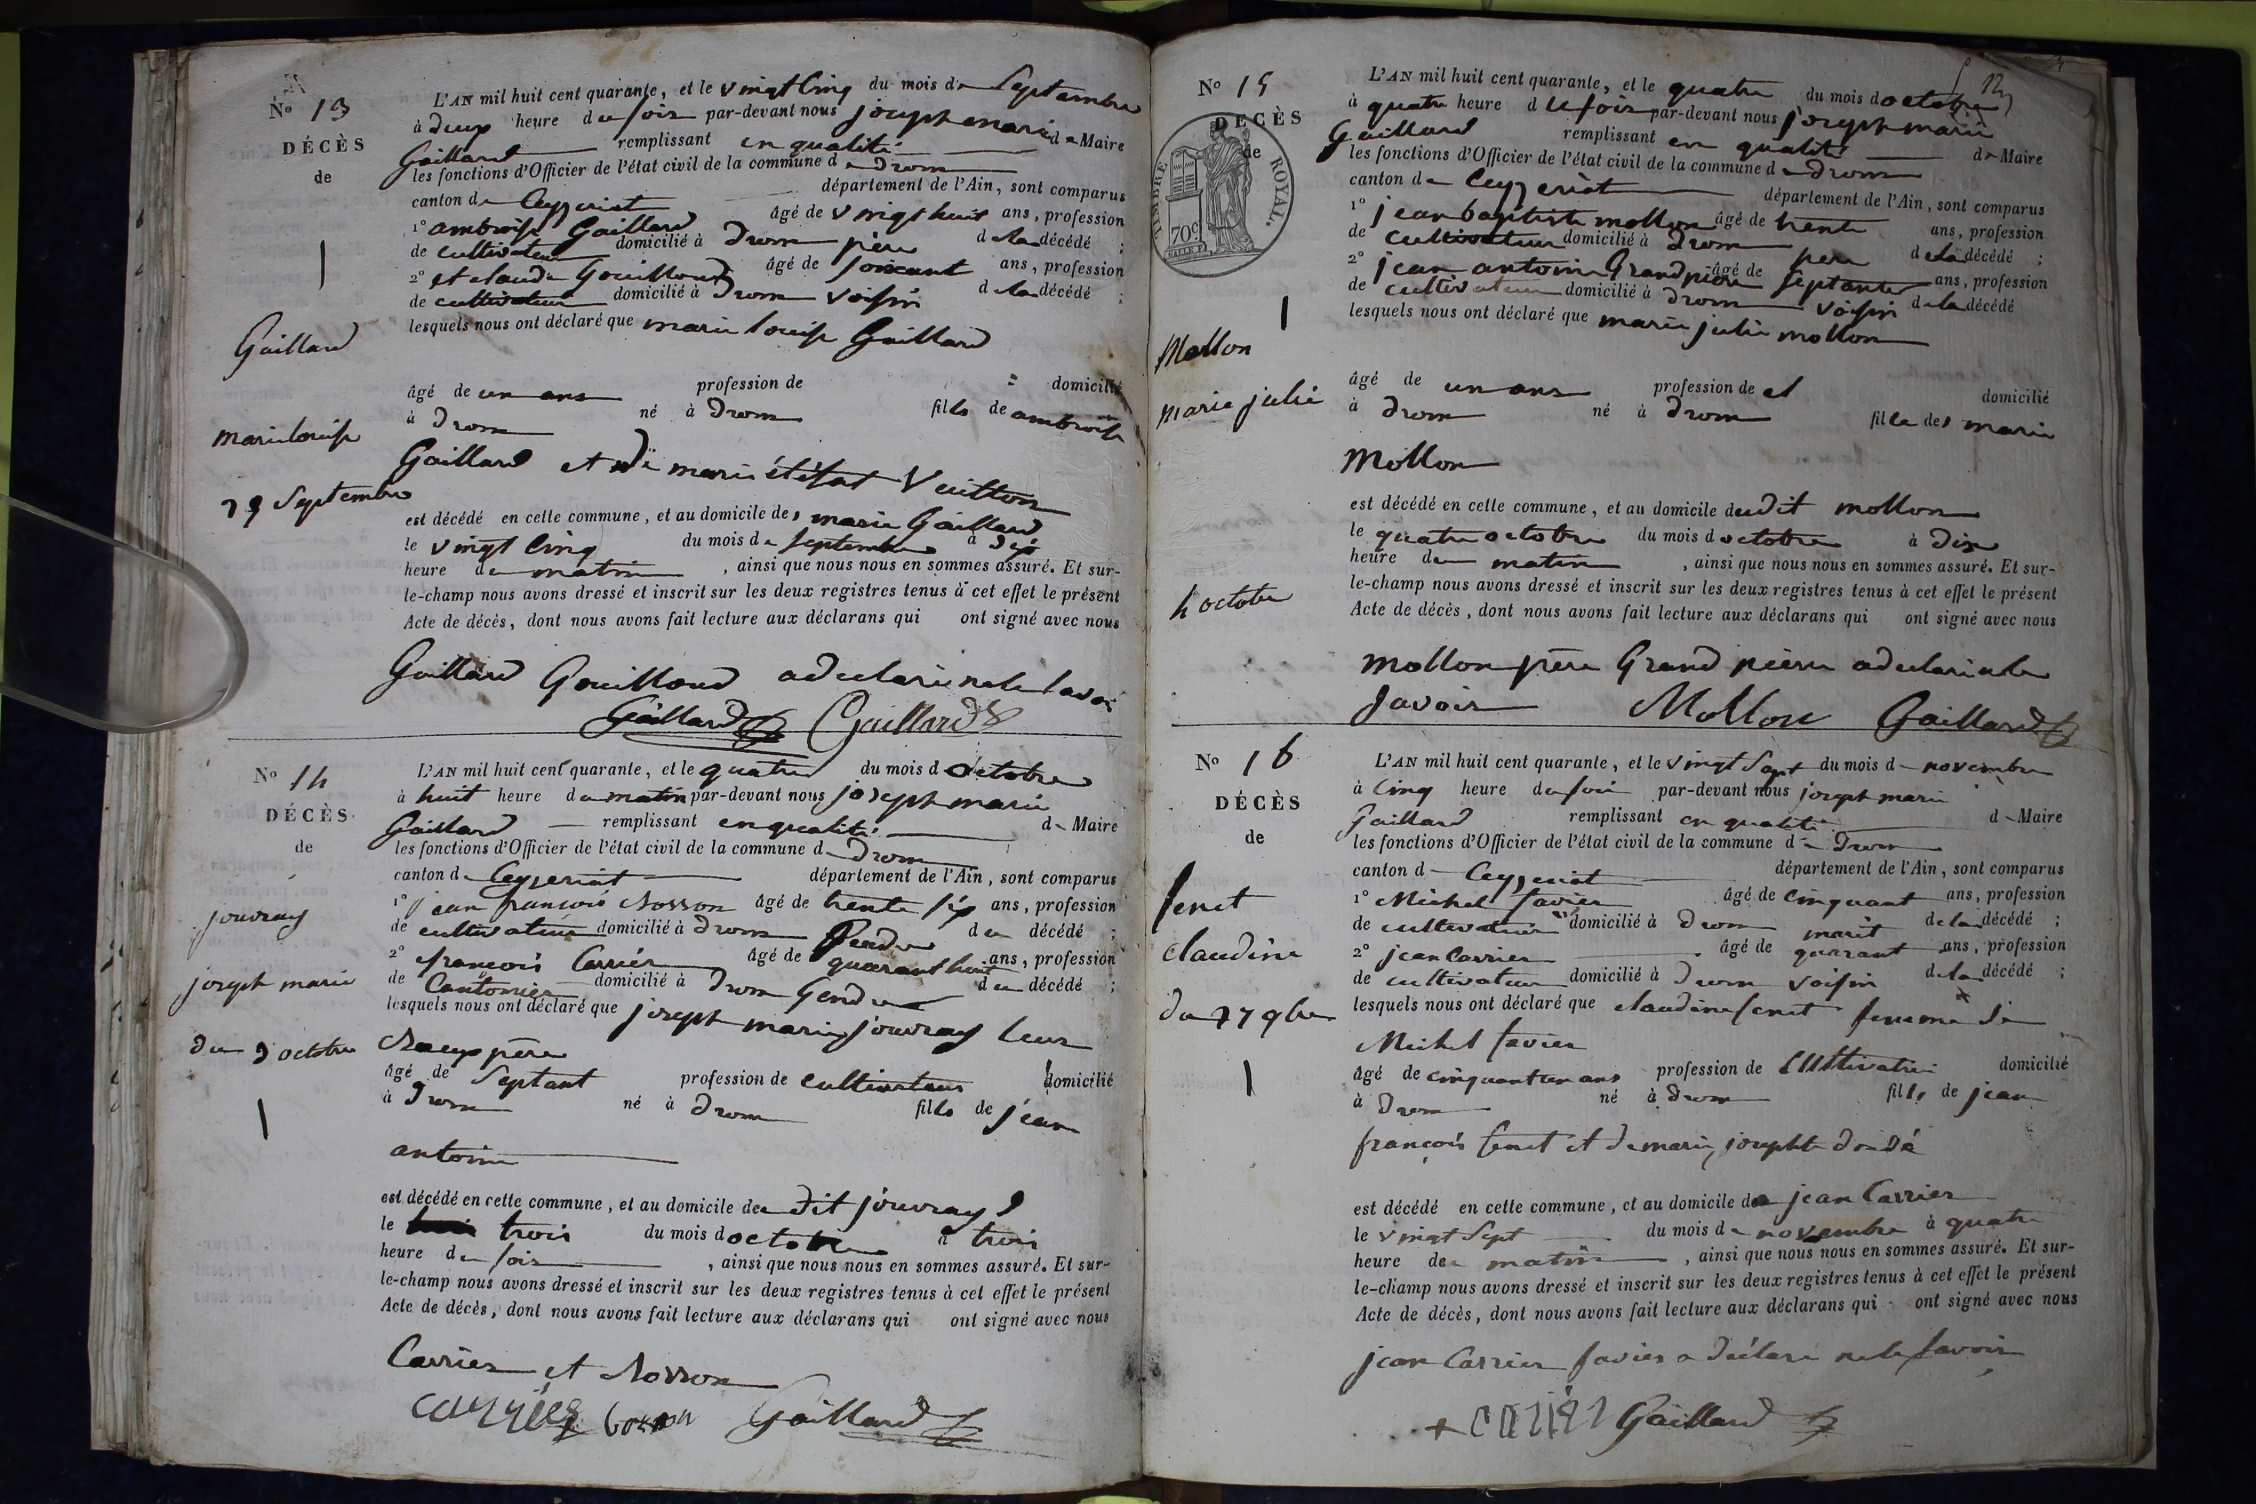 No 13
DÉCÈS
de
Gaillard
marie louise
L'AN mil huit cent quarante, et le vingt cinq du mois de Septembre
à deux heure du soir par-devant nous joseph marie
Gaillard remplissant en qualité de Maire
les fonctions d'Officier de l'état civil de la commune de Drom
canton de Ceyzeriat département de l'Ain, sont comparus
1º ambroise Gaillard âgé de vingt huit ans, profession
de cultivateur domicilié à Drom père de la décédé ;
2º et claude Gouilloud âgé de soixant ans, profession
de cultivateur domicilié à Drom voisin de la décédé ;
lesquels nous ont déclaré que marie louise Gaillard
âgé de un ans profession de domicilié
à Drom né à Drom fille de ambroise
Gaillard et de marie Vuitton
est décédé en cette commune, et au domicile de marie Gaillard
le vingt cinq du mois de septembre à dix
heure du matin , ainsi que nous nous en sommes assuré. Et sur-
le-champ nous avons dressé et inscrit sur les deux registres tenus à cet effet le présent
Acte de décès, dont nous avons fait lecture aux déclarans qui ont signé avec nous
Gaillard Gouilloud a declaré ne le savoi
Gaillard Gaillard
No 14
DÉCÈS
de
jouvray
joseph marie
du 3 octobre
L'AN mil huit cent quarante, et le quatre du mois d octobre
à huit heure du matin par-devant nous joseph marie
Gaillard remplissant en qualité de Maire
les fonctions d'Officier de l'état civil de la commune de Drom
canton de Ceyzeriat département de l'Ain, sont comparus
1º jean françois âgé de trente six ans, profession
de cultivateur domicilié à Drom Gendre du décédé ;
2º françois Carrier âgé de quarant huit ans, profession
de Cantonier domicilié à Drom Gendre du décédé ;
lesquels nous ont déclaré que joseph marie jouvray leur
père
âgé de Septant profession de cultivateur domicilié
à Drom né à Drom fils de jean
antoine
est décédé en cette commune, et au domicile du dit jouvray
le trois du mois d octobre à trois
heure du soir , ainsi que nous nous en sommes assuré. Et sur-
le-champ nous avons dressé et inscrit sur les deux registres tenus à cet effet le présent
Acte de décès, dont nous avons fait lecture aux déclarans qui ont signé avec nous
Carrier et
carrier Gaillard
No 15
DÉCÈS
de
TIMBRE ROYAL
70c
Mollon
marie julie
4 octobre
L'AN mil huit cent quarante, et le quatre du mois d octobre
à quatre heure du soir par-devant nous joseph marie
Gaillard remplissant en qualité de Maire
les fonctions d'Officier de l'état civil de la commune de Drom
canton de Ceyzeriat département de l'Ain, sont comparus
1º jean baptiste mollon âgé de trente ans, profession
de cultivateur domicilié à Drom père de la décédé ;
2º jean antoine Grandpiere âgé de septante ans, profession
de cultivateur domicilié à Drom voisin de la décédé
lesquels nous ont déclaré que marie julie mollon
âgé de un ans profession de et domicilié
à Drom né à Drom fille de marie
Mollon
est décédé en cette commune, et au domicile dudit mollon
le quatre octobre du mois d octobre à dix
heure du matin , ainsi que nous nous en sommes assuré. Et sur-
le-champ nous avons dressé et inscrit sur les deux registres tenus à cet effet le présent
Acte de décès, dont nous avons fait lecture aux déclarans qui ont signé avec nous
Mollon père Grand piere a declaré ne le
savoir Mollon Gaillard
No 16
DÉCÈS
de
fenet
claudine
du 27 9bre
L'AN mil huit cent quarante, et le vingt Sept du mois de novembre
à Cinq heure du soir par-devant nous joseph marie
Gaillard remplissant en qualité de Maire
les fonctions d'Officier de l'état civil de la commune de Drom
canton de Ceyzeriat département de l'Ain, sont comparus
1º Michel favier âgé de cinquant ans, profession
de cultivateur domicilié à Drom marit de la décédé ;
2º jean Carrier âgé de quarant ans, profession
de cultivateur domicilié à Drom voisin de la décédé ;
lesquels nous ont déclaré que claudine fenet femme de
Michel favier
âgé de cinquant un ans profession de cultivatri domicilié
à Drom né à Drom fille de jean
françois fenet et de marie josephte
est décédé en cette commune, et au domicile de jean Carrier
le vingt Sept du mois de novembre à quatre
heure du matin , ainsi que nous nous en sommes assuré. Et sur-
le-champ nous avons dressé et inscrit sur les deux registres tenus à cet effet le présent
Acte de décès, dont nous avons fait lecture aux déclarans qui ont signé avec nous
jean Carrier favier a déclaré ne le savoir
+ carrier Gaillard